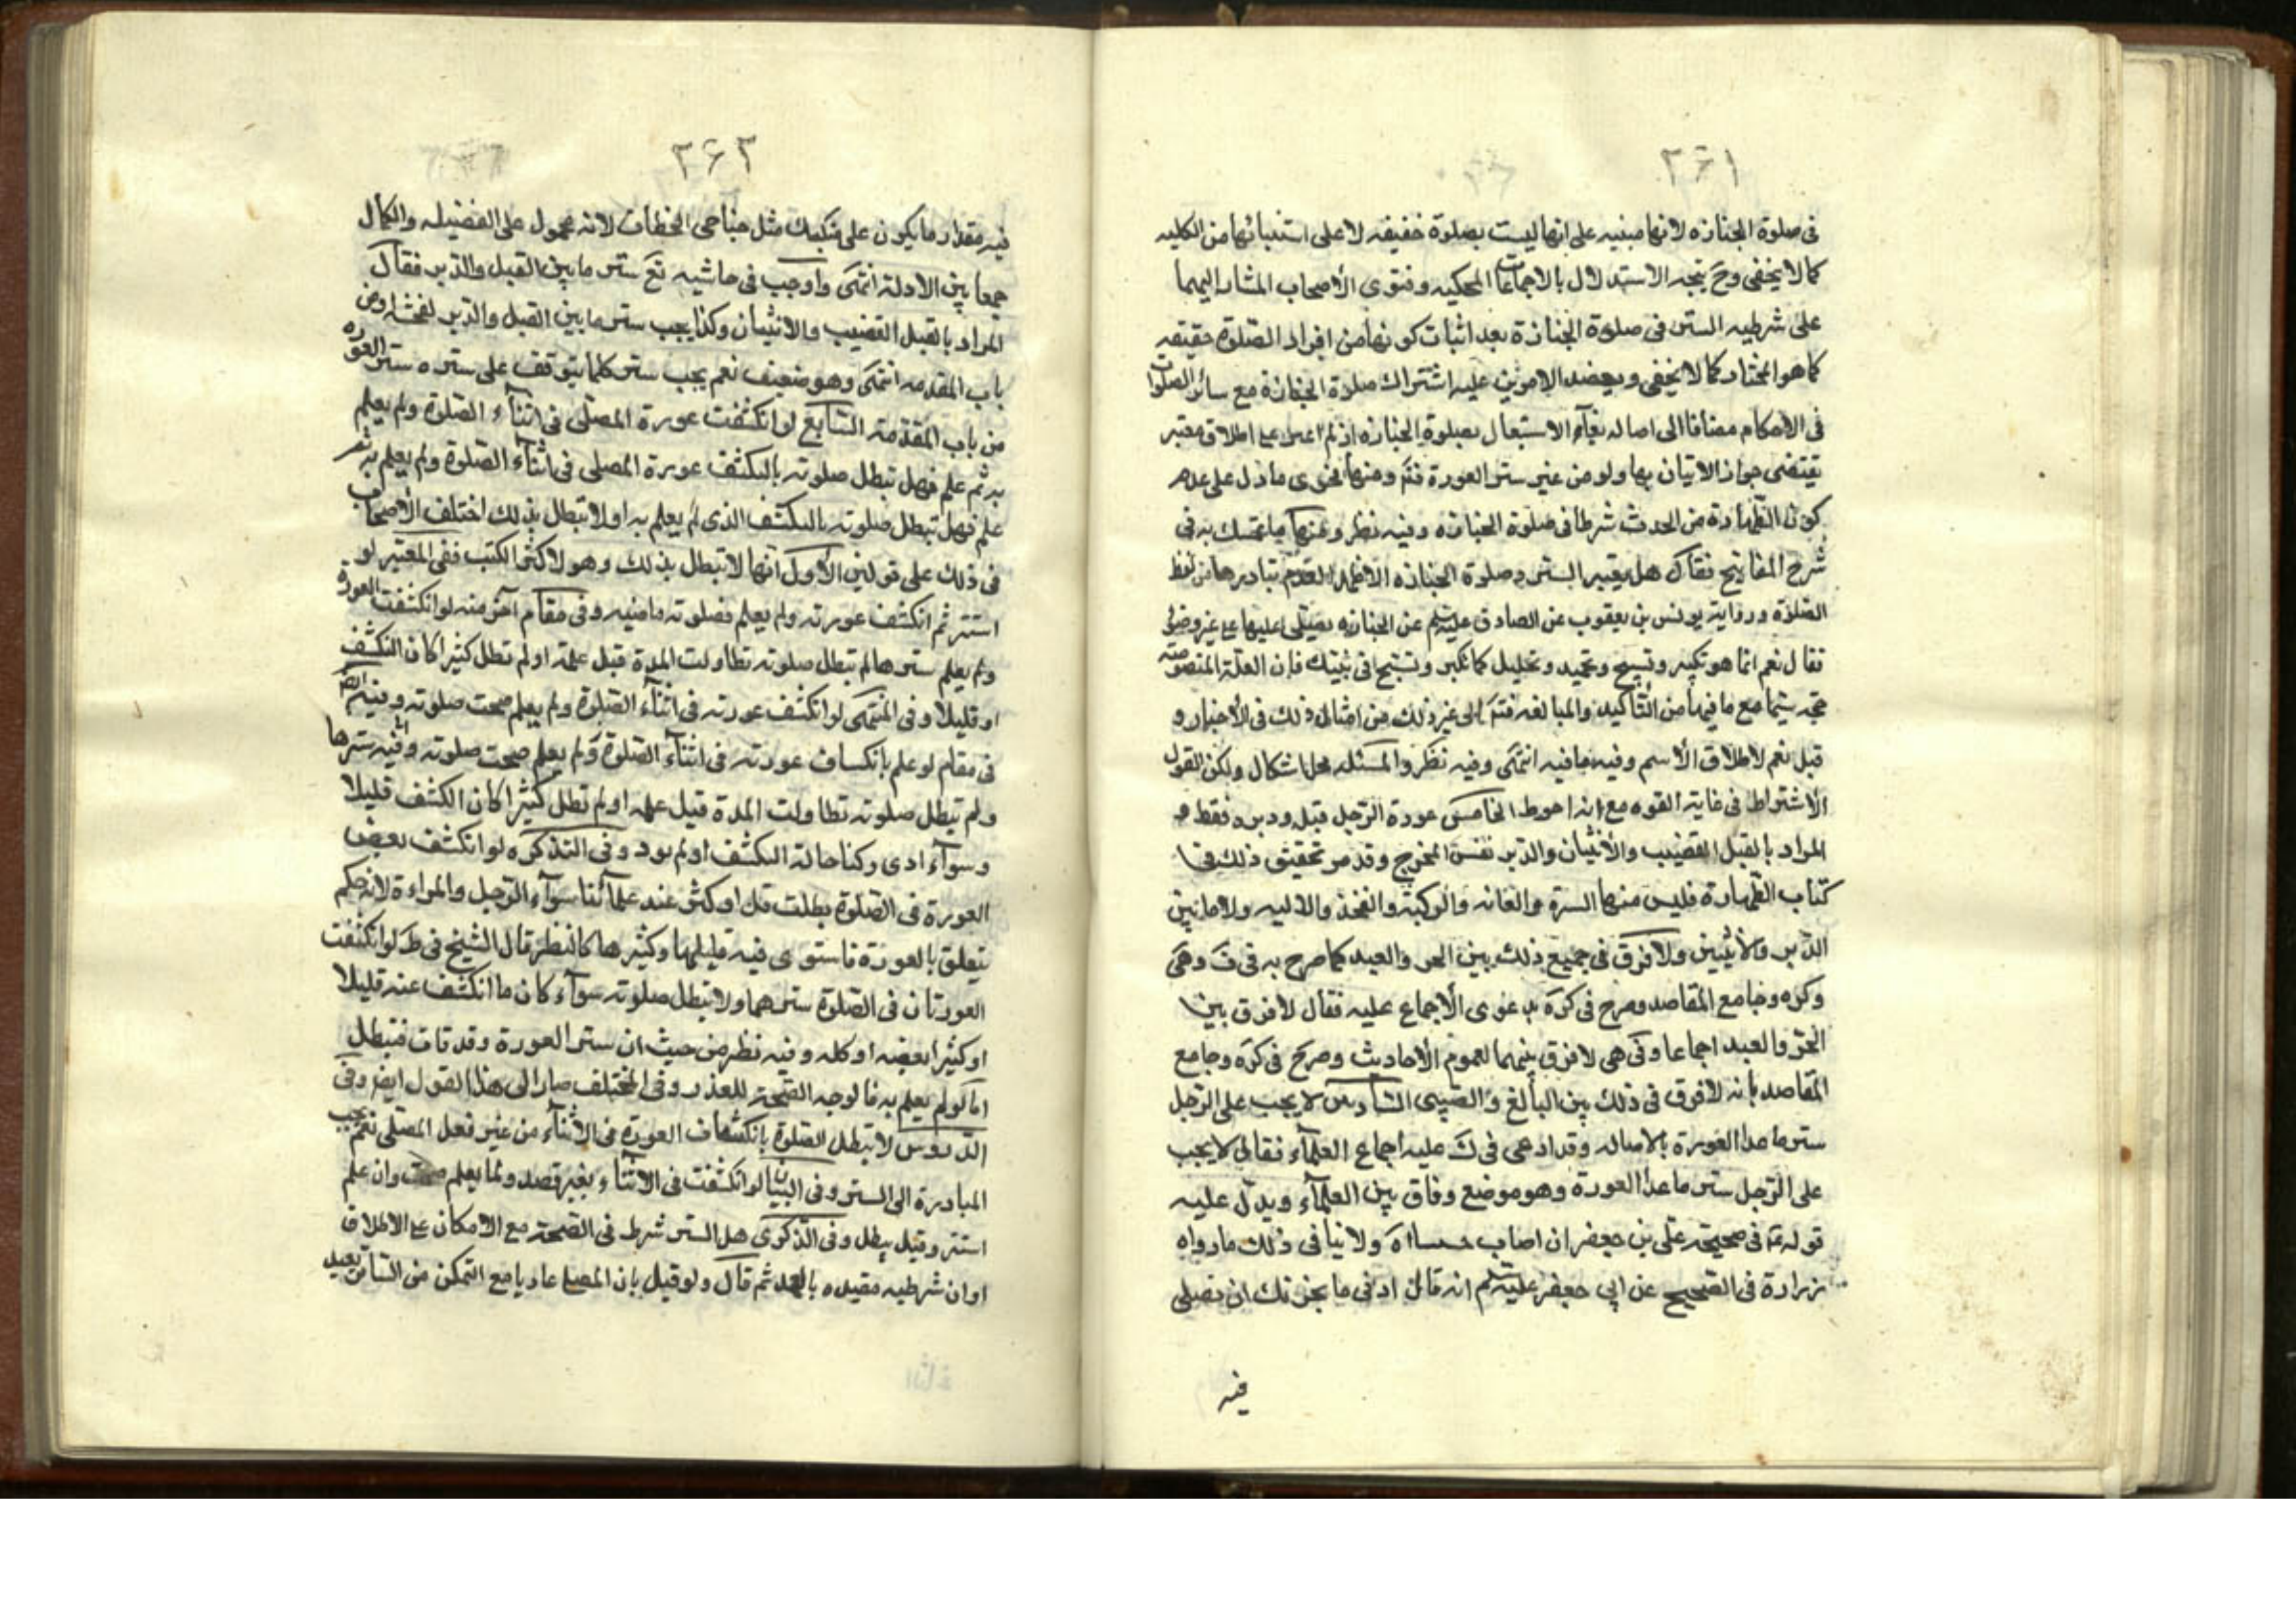 ٢٦١
فى صلوة الجنازه لانها مبنيه على انها ليست بصلوة حقيقه لا على استنبائها من الكليه
كما لا يخفى وح يتجه الاستدلال بالاجماعات المحكيه وفتوى الأصحاب المشار اليهما
على شرطيه الستر فى صلوة الجنازة بعد اثبات كونها من افراد الصّلوة حقيقه
كما هو المختار كما لا يخفى ويعضد الامرين عليه اشتراك صلوة الجنازة مع سائر الصلوات
فى الاحكام مضافا الى اصاله بقاء الاشتغال بصلوة الجنازه اذ لم اعثر على اطلاق معتبر
يقتضى جواز الاتيان بها ولو من غير ستر العورة فتم ومنها فحوى ما دل على عدم
كون الطّهارة من الحدث شرطا فى صلوة الجنازه وفيه نظر ومنها ما تمسك به فى
شرح المفاتيح فقال هل يعتبر الستر فى صلوة الجنازه الاظهر العدم تبادرها من لفظ
الصّلوة ورواية يونس بن يعقوب عن الصادق عليه السلم عن الجنازه يصلى عليها على غير وضوء
فقال نعم انما هو تكبير وتسبيح وتحميد وتهليل كما تكبر وتسبح فى بيتك فان العلة المنصوصه
حجه سيّما مع ما فيها من التّأكيد والمبالغه فتم الى غير ذلك من امثال ذلك فى الأخبار و
قيل نعم لاطلاق الأسم وفيه ما فيه انتهى وفيه نظر والمسئله محل اشكال ولكن القول
الأشتراط فى غاية القوه مع انه احوط الخامس عورة الرّجل قبله ودبره فقط و
المراد بالقبل القضيب والأنثيان والدّبر نفس المخرج وقد مر تحقيق ذلك فى
كتاب الطّهارة فليس منها السرة والعانه والركبة والفخذ والاليه ولا ما بين
الدّبر والأنثيين ولا فرق فى جميع ذلك بين الحر والعبد كما صرح به فى ف وهى
وكره وجامع المقاصد وصرح فى كره بدعوى الأجماع عليه فقال لا فرق بين
الحرّ والعبد اجماعا وفى هى لا فرق بينهما لعموم الأحاديث وصرح فى كره وجامع
المقاصد بانه لا فرق فى ذلك بين البالغ والصبى السّادس لا يجب على الرّجل
ستر ما عدا العورة بالاصاله وقد ادعى فى ك عليه اجماع العلمآء فقال لا يجب
على الرّجل ستر ما عدا العورة وهو موضع وفاق بين العلمآء ويدلّ عليه
قوله ع فى صحيحة على بن جعفر ان اصاب ولا ينافى ذلك ما رواه
زرارة فى الصّحيح عن ابى جعفر عليه السلم انه قال ادنى ما يجزئك ان تصلى
فيه
٢٦٢
فيه مقدار ما يكون على منكبيك مثل جناحى الخطاف لانه محمول على الفضيله والكمال
جمعا بين الادلة انتهى واوجب فى حاشيه يع ستر ما بين القبل والدبر فقال
المراد بالقبل القضيب والانثيان وكذا يجب ستر ما بين القبل والدّبر
باب المقدمه انتهى وهو ضعيف نعم يجب ستر كلما يتوقف على ستره ستر العوره
من باب المقدّمة السّابع لو انكشفت عورة المصلّى فى اثنآء الصّلوة ولم يعلم
به ثم علم فهل تبطل صلوته بالكشف عورة المصلى فى اثنآء الصّلوة ولم يعلم به ثم
علم فهل تبطل صلوته بالكشف الذى لم يعلم به او لا تبطل بذلك اختلف الأصحاب
فى ذلك على قولين الأول انّها لا تبطل بذلك وهو لاكثر الكتب ففى المعتبر لو
استتر ثم انكشف عورته ولم يعلم فصلوته ماضيه وفى مقام آخر منه لو انكشفت العورة
ولم يعلم سترها لم تبطل صلوته تطاولت المدة قبل علمه او لم تطل كثيرا كان التكشف
او قليلا وفى المنتهى لو انكشف عورته فى اثنآء الصّلوة ولم يعلم صحت صلوته وفيه ايضا
فى مقام لو علم بانكساف عورته فى اثنآء الصّلوة ولم يعلم صحت صلوته وفيه سترها
ولم تبطل صلوته تطاولت المدة قبل علمه او لم تطل كثيرا كان الكشف قليلا
وسوآء ادى ركنا حالة الكشف او لم يود وفى التذكره لو انكشف بعض
العورة فى الصّلوة بطلت قل او كثر عند علمآئنا سوآء الرّجل والمراءة لانه حكم
يتعلق بالعورة فاستوى فيه قليلها وكثيرها كالنظر قال الشيخ فى ط لو انكشفت
العورتان فى الصّلوة سترهما ولا تبطل صلوته سوآء كان ما انكشف عنه قليلا
او كثيرا بعضه او كله وفيه نظر من حيث ان ستر العورة وقد فات فتبطل
اما لو لم يعلم به فالوجه الصّحة للعذر وفى المختلف صار الى هذا القول ايضا وفى
الدّروس لا تبطل الصّلوة بانكشاف العورة فى الاثنآء من غير فعل المصلّى نعم يجب
المبادرة الى الستر وفى البيان لو انكشفت فى الاثنآء بغير قصد ولما يعلم صحت وان علم
استتر وقيل يبطل وفى الذّكرى هل الستر شرط فى الصّحة مع الامكان على الاطلاق
او ان شرطيه مقيده بالعمد ثم قال ولو قيل بان المصلى عاريا مع التمكن من الساتر يعيد